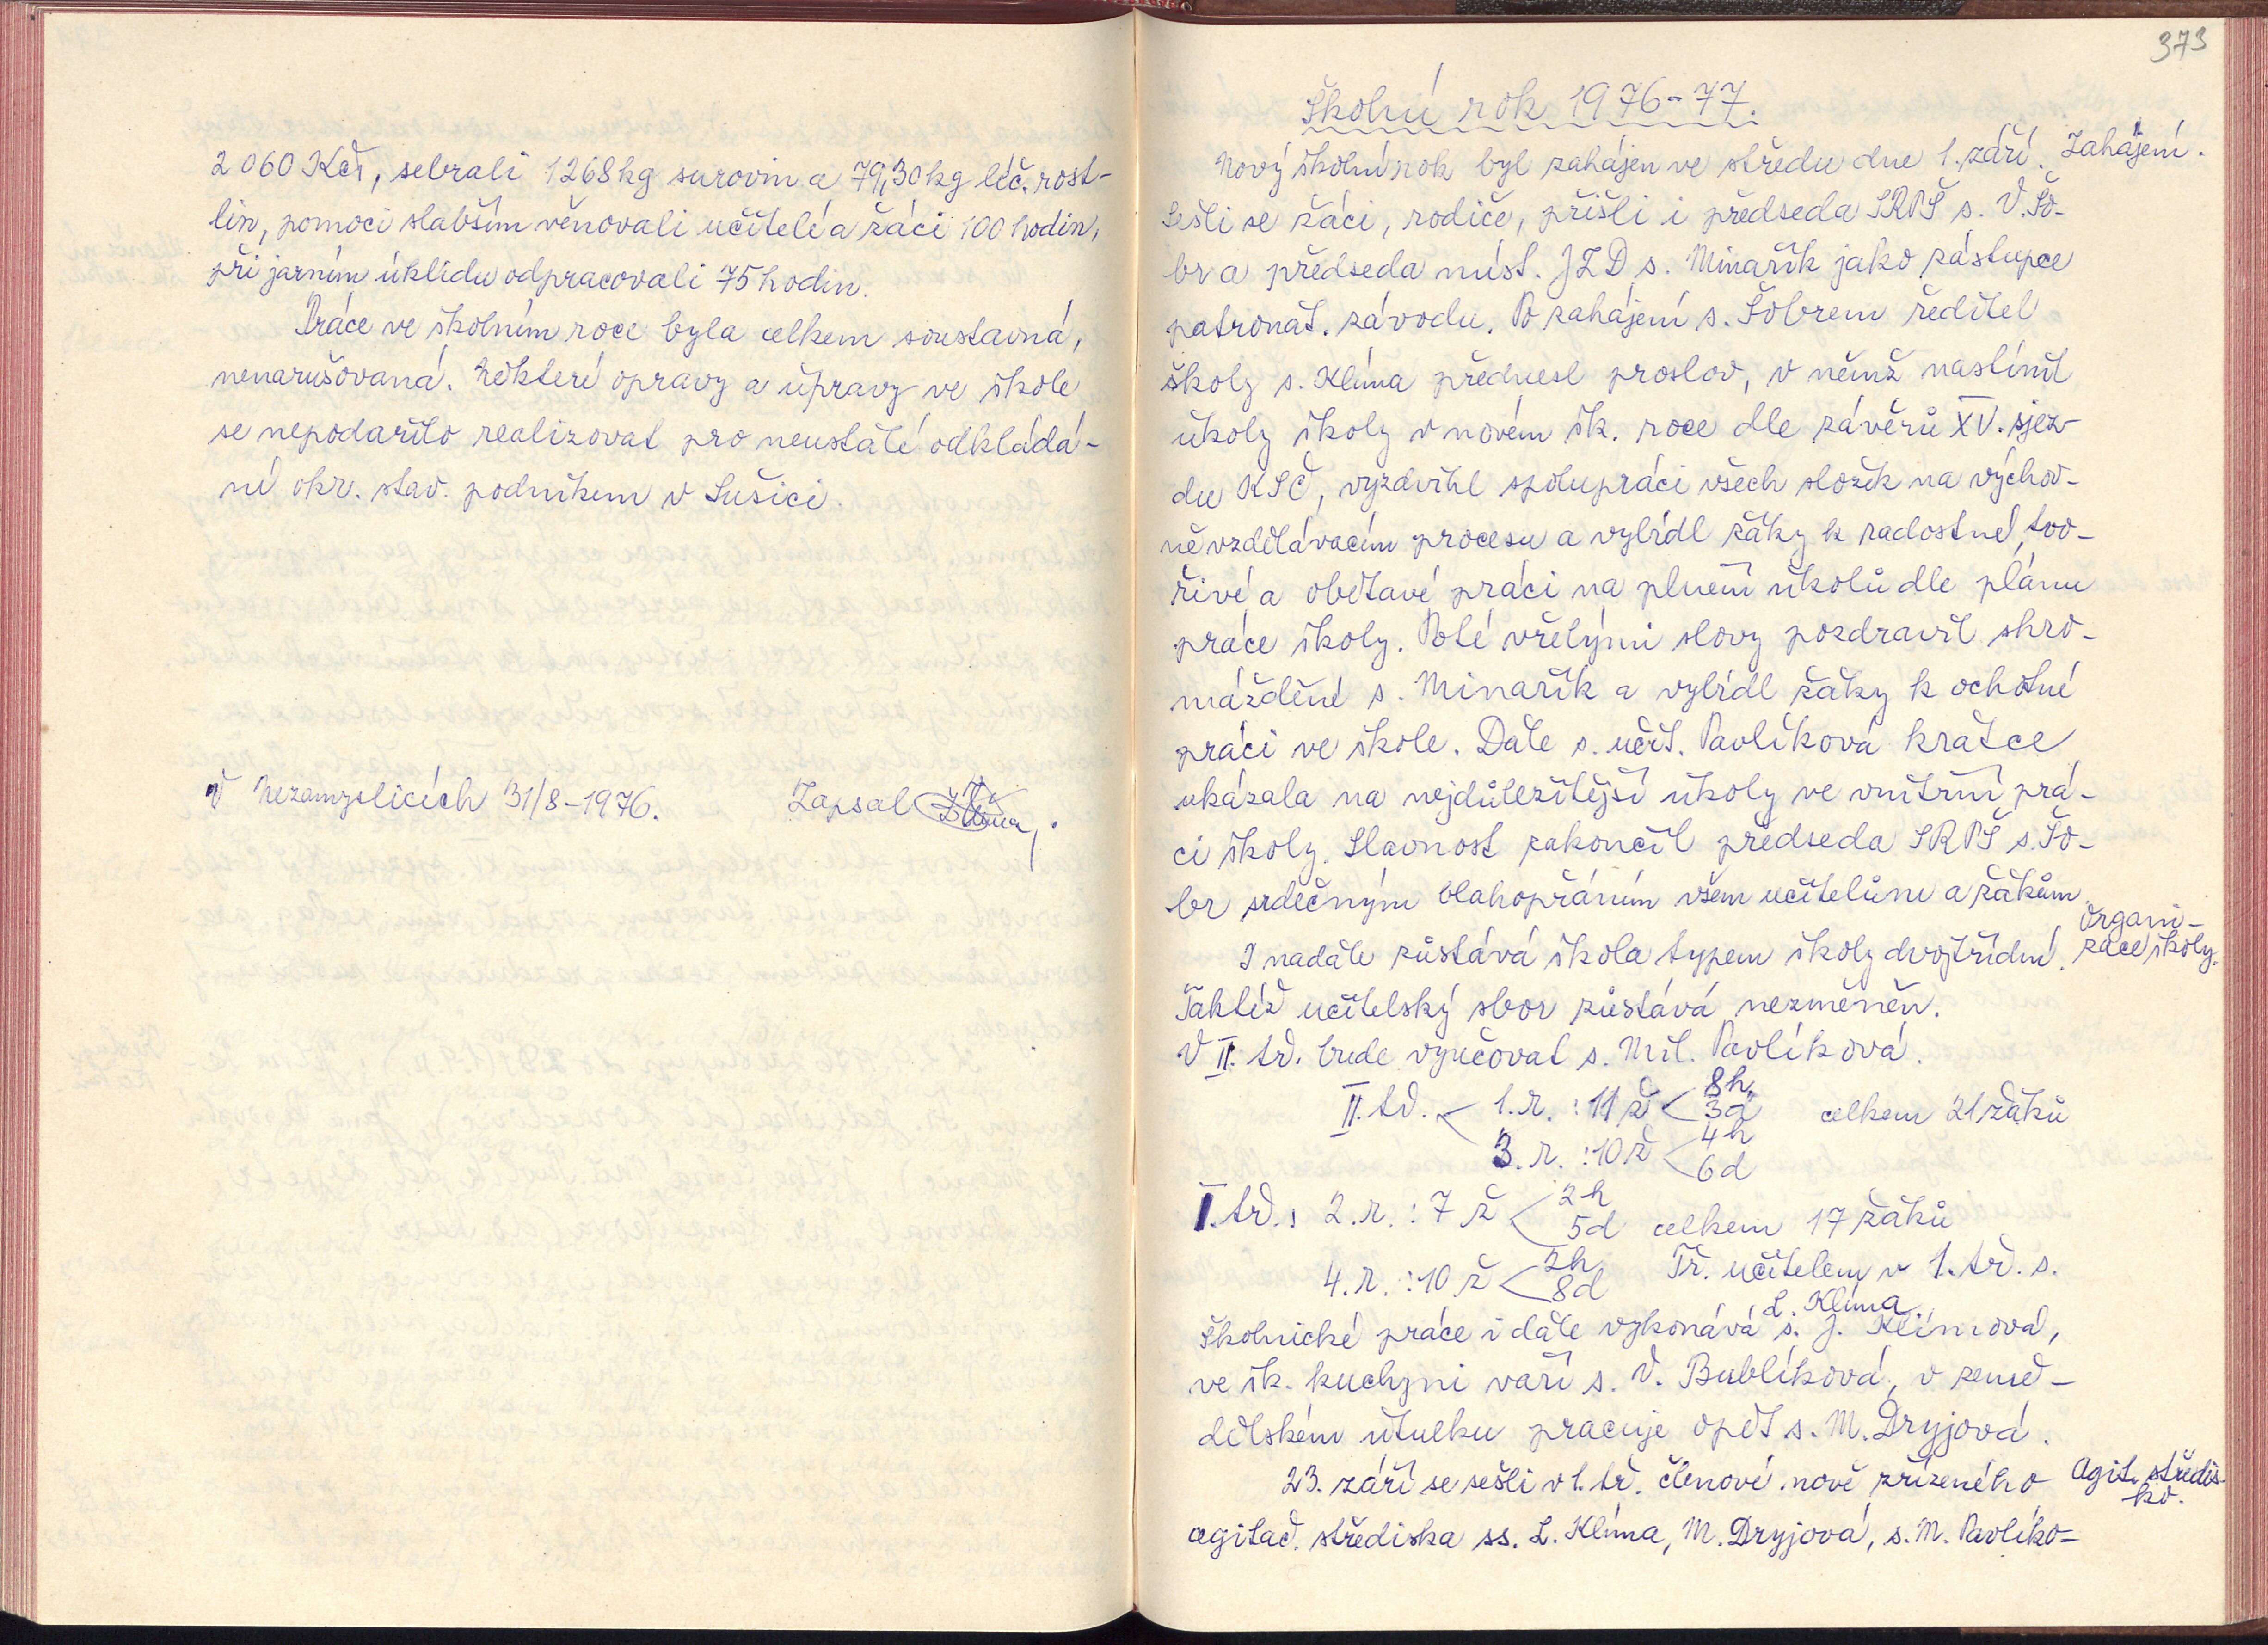 2 060 Kčs, sebrali 1268 kg surovin a 79,30 kg léč. rost-
lin, pomoci slabším věnovali učitelé a žáci 100 hodin,
při jarním úklidu odpracovali 75 hodin.
Práce ve školním roce byla celkem soustavná,
nenarušovaná. Některé opravy a úpravy ve škole
se nepodařilo realizovat pro neustálé odkládá-
ní okr. stav. podnikem v Sušici.
V Nezamyslicích 31/8-1976. Zapsal Klíma
373
Školní rok 1976-77.
Nový školní rok byl zahájen ve středu dne 1. září. Zahájení.
Sešli se žáci, rodiče, přišli i předseda SRPŠ s. V. Šo-
br a předseda míst. JZD s. Minařík jako zástupce
patronát. závodu. Po zahájení s. Šobrem ředitel
školy s. Klíma přednesl proslov, v němž nastínil
úkoly školy v novém šk. roce dle závěrů XV. sjez-
du KSČ, vyzdvihl spolupráci všech složek na výchov-
ně vzdělávacím procesu a vybídl žáky k radostné, tvo-
řivé a obětavé práci na plnění úkolů dle plánu
práce školy. Poté vřelými slovy pozdravil shro-
máždění s. Minařík a vybídl žáky k ochotné
práci ve škole. Dále s. učit. Pavlíková krátce
ukázala na nejdůležitější úkoly ve vnitřní prá-
ci školy. Slavnost zakončil předseda SRPŠ s. Šo-
br srdečným blahopřáním všem učitelům a žákům.
Organi-
zace školy.
I nadále zůstává škola typem školy dvojtřídní.
Taktéž učitelský sbor zůstává nezměněn.
V II. tř. bude vyučovat s. Mil. Pavlíková.
II. tř. < 1. r. : 11 ž < 8h, 3d celkem 21 žáků
3. r. : 10 ž < 4h 6d
I. tř. : 2. r. : 7 ž < 2h 5d celkem 17 žáků
4. r. : 10 ž < 2h 8d Tř. učitelem v 1. tř. s.
L. Klíma.
Školnické práce i dále vykonává s. J. Klímová,
ve šk. kuchyni vaří s. V. Bublíková, v zemědě-
dělském útulku pracuje opět s. M. Dryjová.
23. září se sešli v 1. tř. členové nově zřízeného Agit. středis-
ko.
agitač. střediska ss. L. Klíma, M. Dryjová, s. M. Pavlíko-